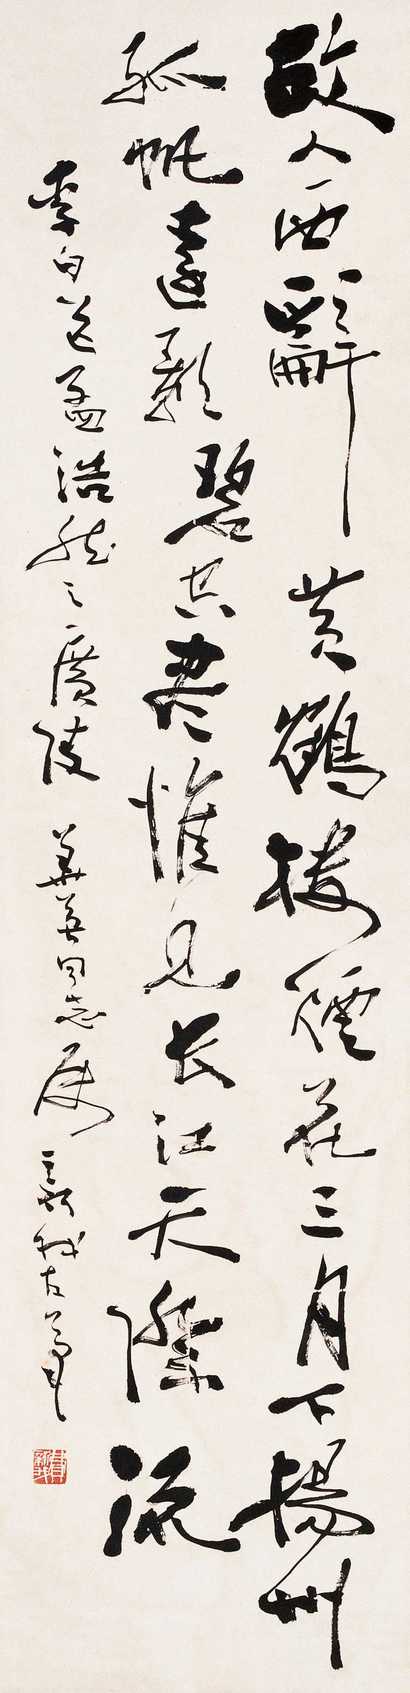 故人西辭黄鶴楼煙花三月下揚州
孤帆遠影碧空盡惟見长江天際流
李白送孟浩然之廣陵 華英同志属 費新我左筆